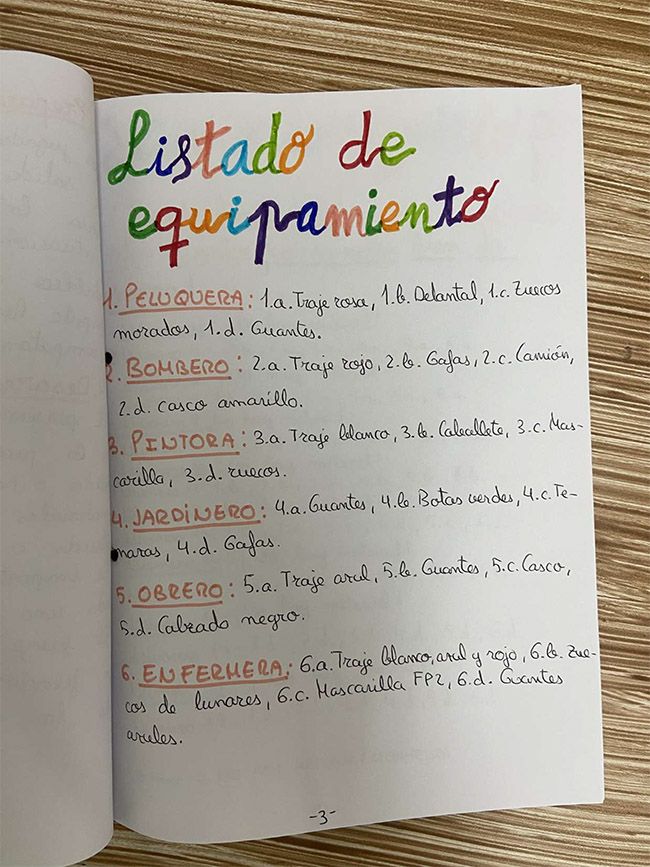 Listado de
equipamiento
1. PELUQUERA: 1.a. Traje rosa, 1.b. Delantal, 1.c. Zuecos
morados, 1.d. Guantes.
2. BOMBERO: 2.a. Traje rojo, 2.b. Gafas, 2.c. Camión,
2.d. casco amarillo.
3. PINTORA: 3.a. Traje blanco, 3.b. Caballete, 3.c. Mas-
carilla, 3.d. zuecos.
4. JARDINERO: 4.a. Guantes, 4.b. Botas verdes, 4.c. Te-
naras, 4.d. Gafas.
5. OBRERO: 5.a. Traje azul, 5.b. Guantes, 5.c. Casco,
5.d. Calzado negro.
6. ENFERMERA: 6.a. Traje blanco, azul y rojo, 6.b. Zue-
cos de lunares, 6.c. Mascarilla FP2, 6.d. Guantes
azules.
-3-